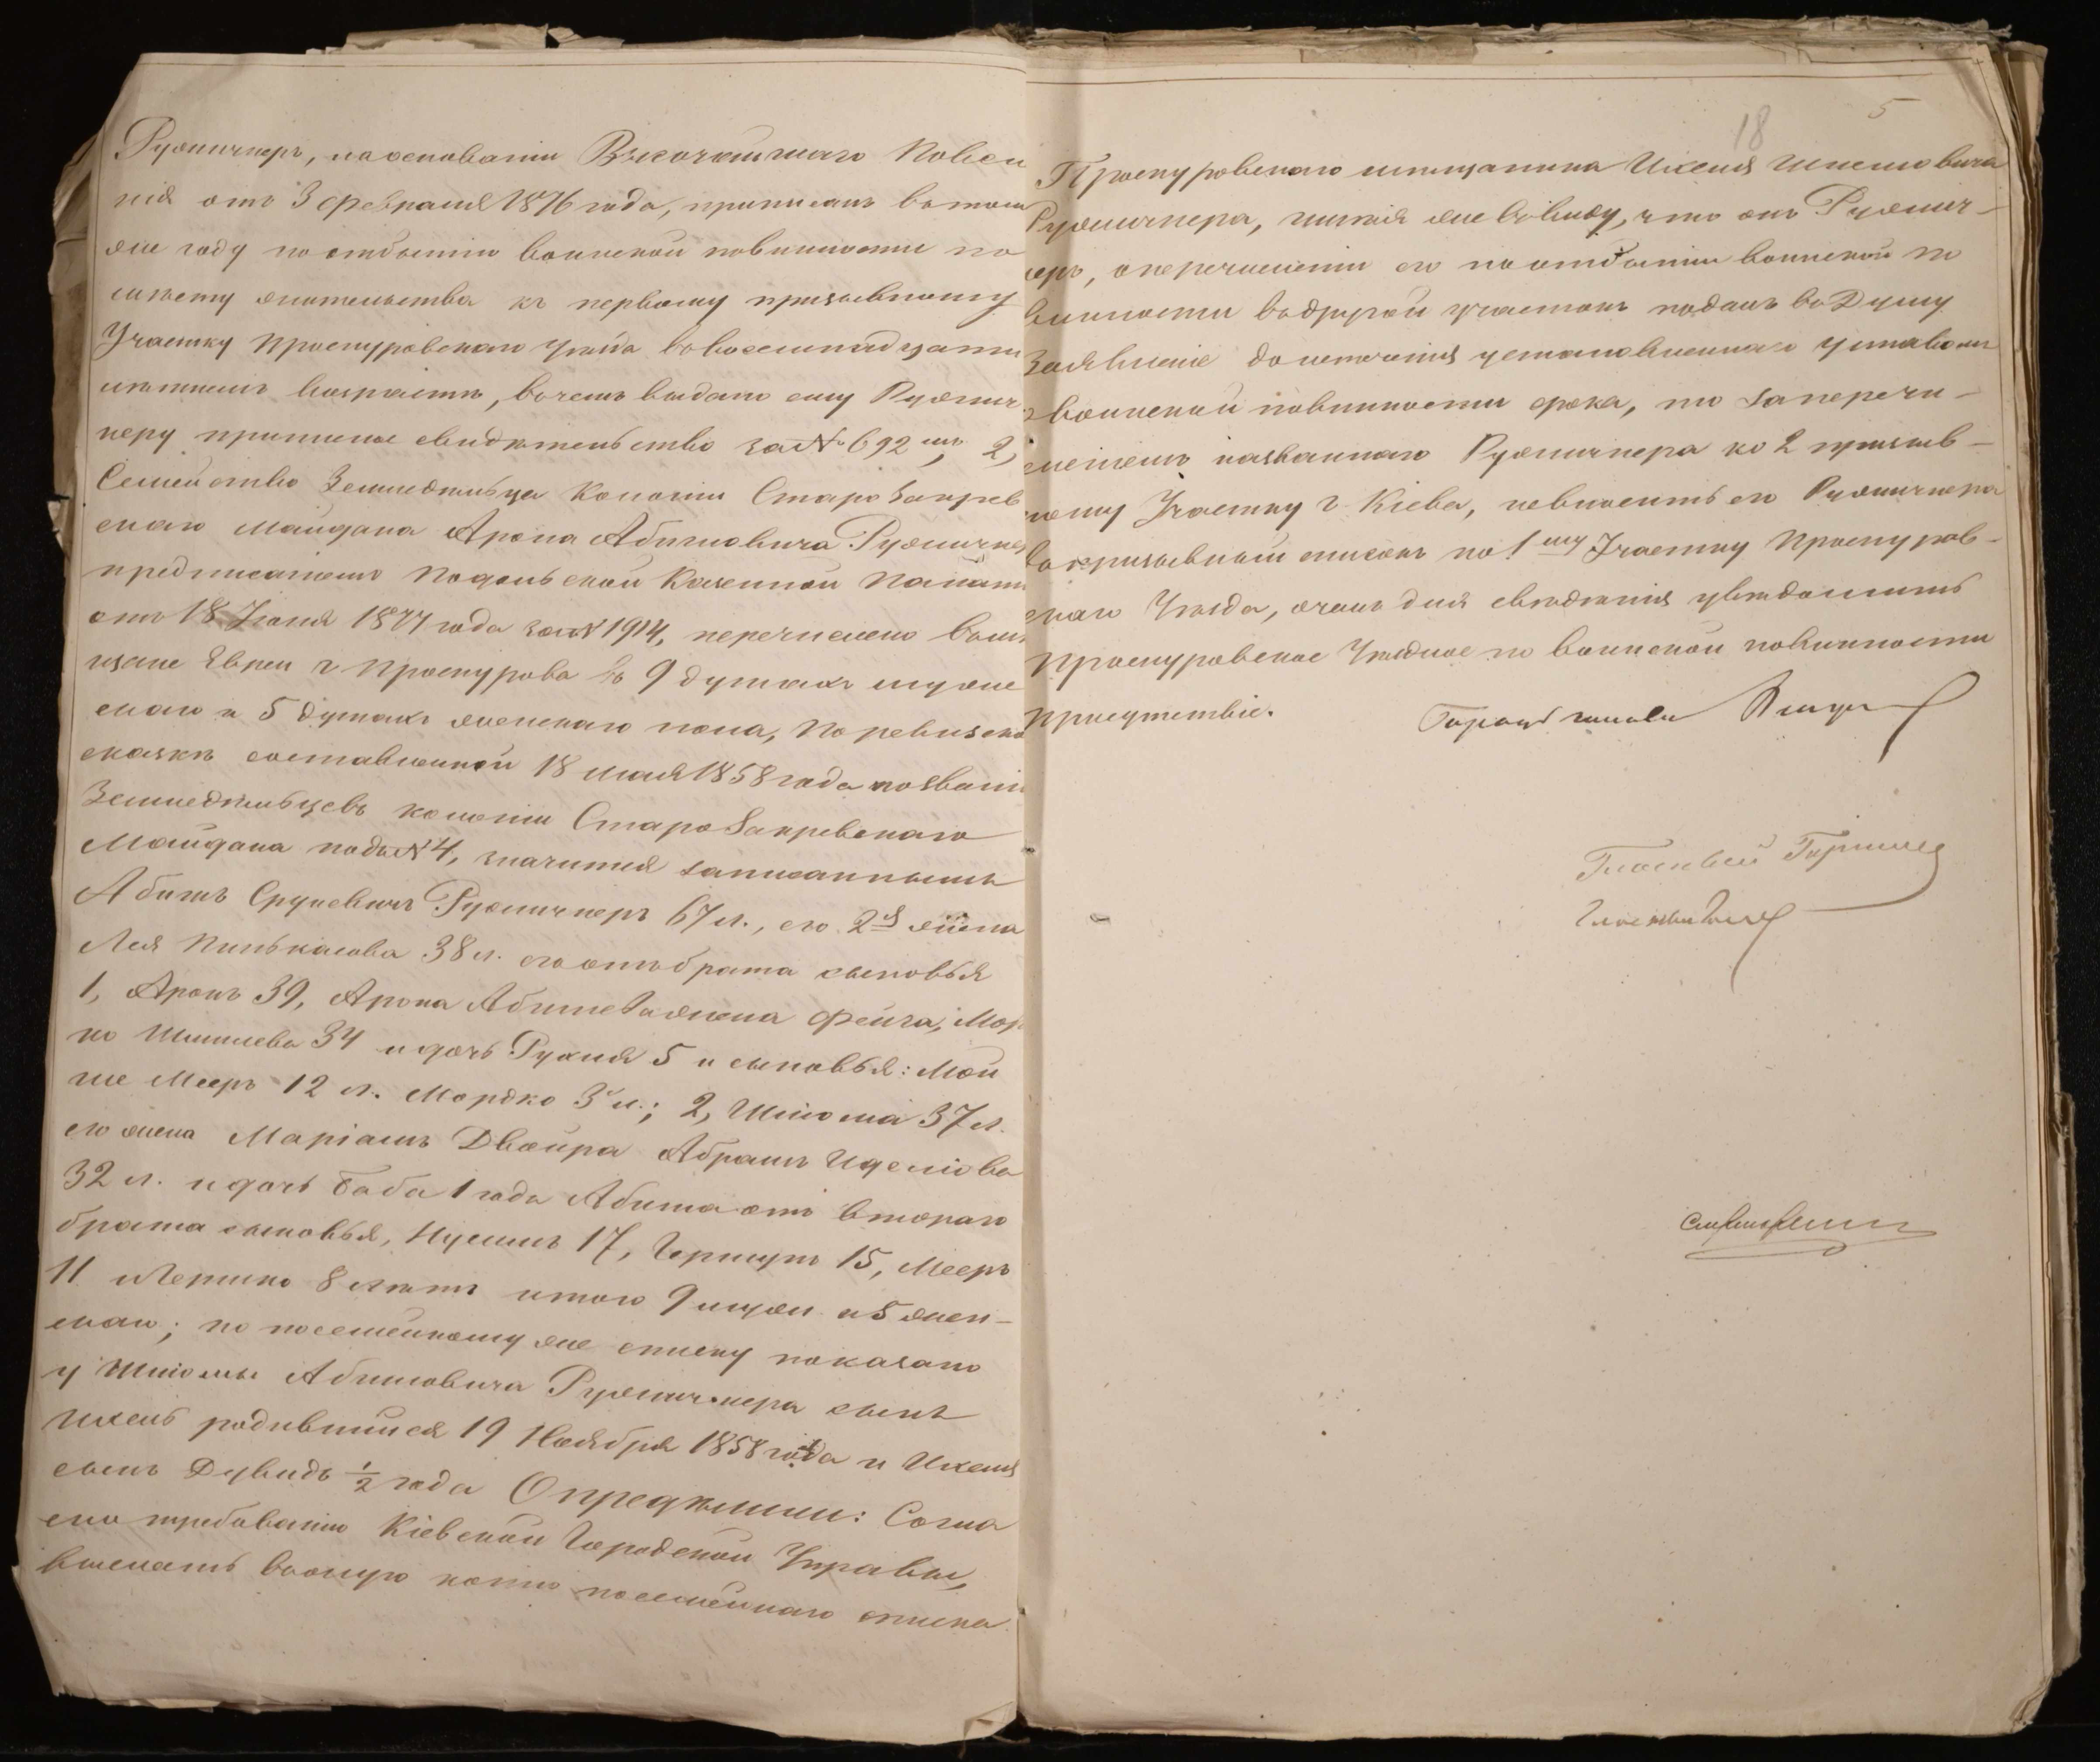 Ружичнеръ, на основаніи Высочайшаго Повел
нія отъ 3 февраля 1876 года, приписанъ въ томъ
же году по отбытію воинской повинности по
мѣсту жительства къ первому призывному
Участку Проскуровскаго Уѣзда въ восемнадцати
лѣтнемъ возрастѣ, въ чемъ выдано ему Ружич
неру приписное свидѣтельство за № 692мъ; 2,
Семейство Земледѣльца Колоніи Старо Закрев
скаго Майдана Арона Абишовича Ружичнер
предписаніемъ Подольской Казенной Палаты
отъ 18 Іюня 1877 года за № 1914, перечислено въ мѣ
щане Евреи г Проскурова въ 9 душахъ мужес
скаго и 5 душахъ женскаго пола, По ревизско
сказкѣ составленной 18 мая 1858 года по званію
Земледѣльцевъ колоніи Старо Закревскаго
Майдана подъ № 4, значится записаннымъ
Абишъ Срулевичъ Ружичнеръ 67 л., его 2я жена
Лея Пинькасова 38 л. его отъ 1 брата сыновья
1, Аронъ 39, Арона Абишева жена Фейга, Мор
ко Шмилева 34 и дочь Рухля 5 и сыновья: Мой
ше Мееръ 12 л. Мордко 3 л.; 2, Шліома 37 л.
его жена Маріамъ Двойра Абрамъ Иделіова
32 л. и дочь Баба 1 года Абиша отъ втораго
брата сыновья, Нусимъ 17, Гершунъ 15, Мееръ
11 Лершко 8 лѣтъ итого 9 мужс. и 5 жен-
скаго; по посемейному же списку показано
у Шліомы Абишовича Ружичнера сынъ
Ихель родившійся 19 Ноября 1858 года и Ихеля
сынъ Дувидъ ½ года Опредѣлили: Согла
сно требованію Кіевской Городской Управы,
выслать въ оную копію посемейнаго списка
18 5
Проскуровскаго мѣщанина Ихеля Шлемовича
Ружичнера, имѣя же въ виду, что онъ Ружич-
неръ, о перечисленіи его по отбытію воинской по
винности въ другой участокъ подалъ въ Думу
Заявленіе до истеченія установленнаго уставомъ
о воинской повинности срока, то за перечи-
сленіемъ названнаго Ружичнера ко 2 призыв-
ному Участку г. Кіева, не вносить его Ружичнера
въ призывный списокъ по 1му Участку Проскуров-
скаго Уѣзда, о чемъ для свѣдѣнія увѣдомить
Проскуровское Уѣздное по воинской повинности
присутствіе.
Городской голова
Гласный
Гласный